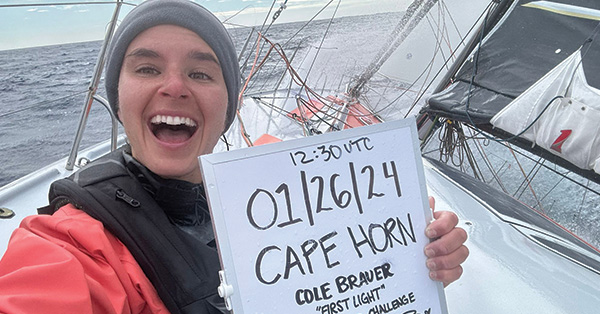 12:30 UTC
01/26/24
CAPE HORN
COLE BRAUER
"FIRST LIGHT"
CHALLENGE
1